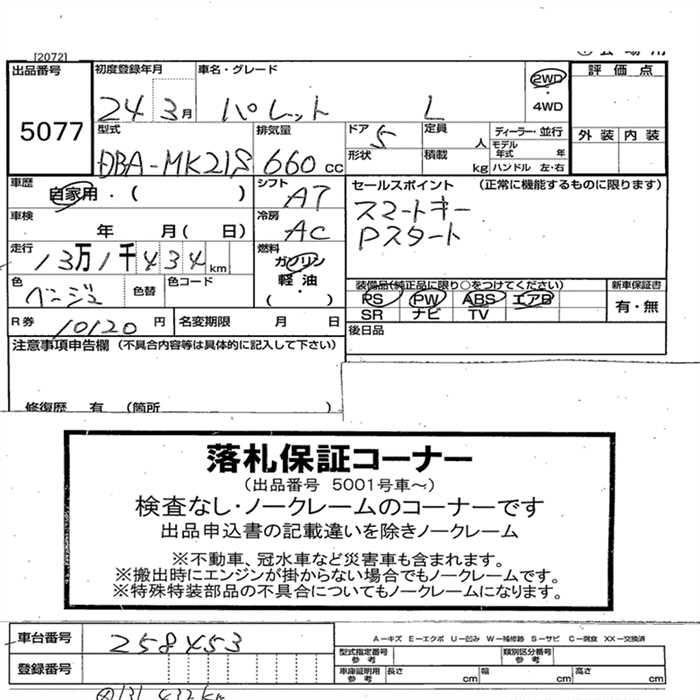 [2072]
出品番号 初度登録年月 車名・グレード 2WD 評価点
5077 24 3月 パレット L 4WD
型式 排気量 ドア 定員 ディーラー・並行 外装 内装
DBA-MK21S 660cc 5 人 モデル年式 年
形状 積載 kg ハンドル 左・右
車歴 自家用・( ) シフト AT セールスポイント (正常に機能するものに限ります)
車検 年 月( 日) 冷房 AC スマートキー
Pスタート
走行 13万1千434km 燃料 ガソリン
軽油
・( )
色 ベージュ 色替 色コード 装備品(純正品に限り○をつけてください) 新車保証書
PS PW ABS エアB 有・無
SR ナビ TV
R券 10120円 名変期限 月 日 後日品
注意事項申告欄(不具合内容等は具体的に記入して下さい)
修復歴 有 (箇所 )
落札保証コーナー
(出品番号 5001号車～)
検査なし・ノークレームのコーナーです
出品申込書の記載違いを除きノークレーム
※不動車、冠水車など災害車も含まれます。
※搬出時にエンジンが掛からない場合でもノークレームです。
※特殊特装部品の不具合についてもノークレームになります。
車台番号 258453 A－キズ E－エクボ U－凹み W－補修跡 S－サビ C－腐食 XX－交換済
型式指定番号 参考 類別区分番号 参考
登録番号 車庫証明用 参考 長さ cm 幅 cm 高さ cm
131,432km